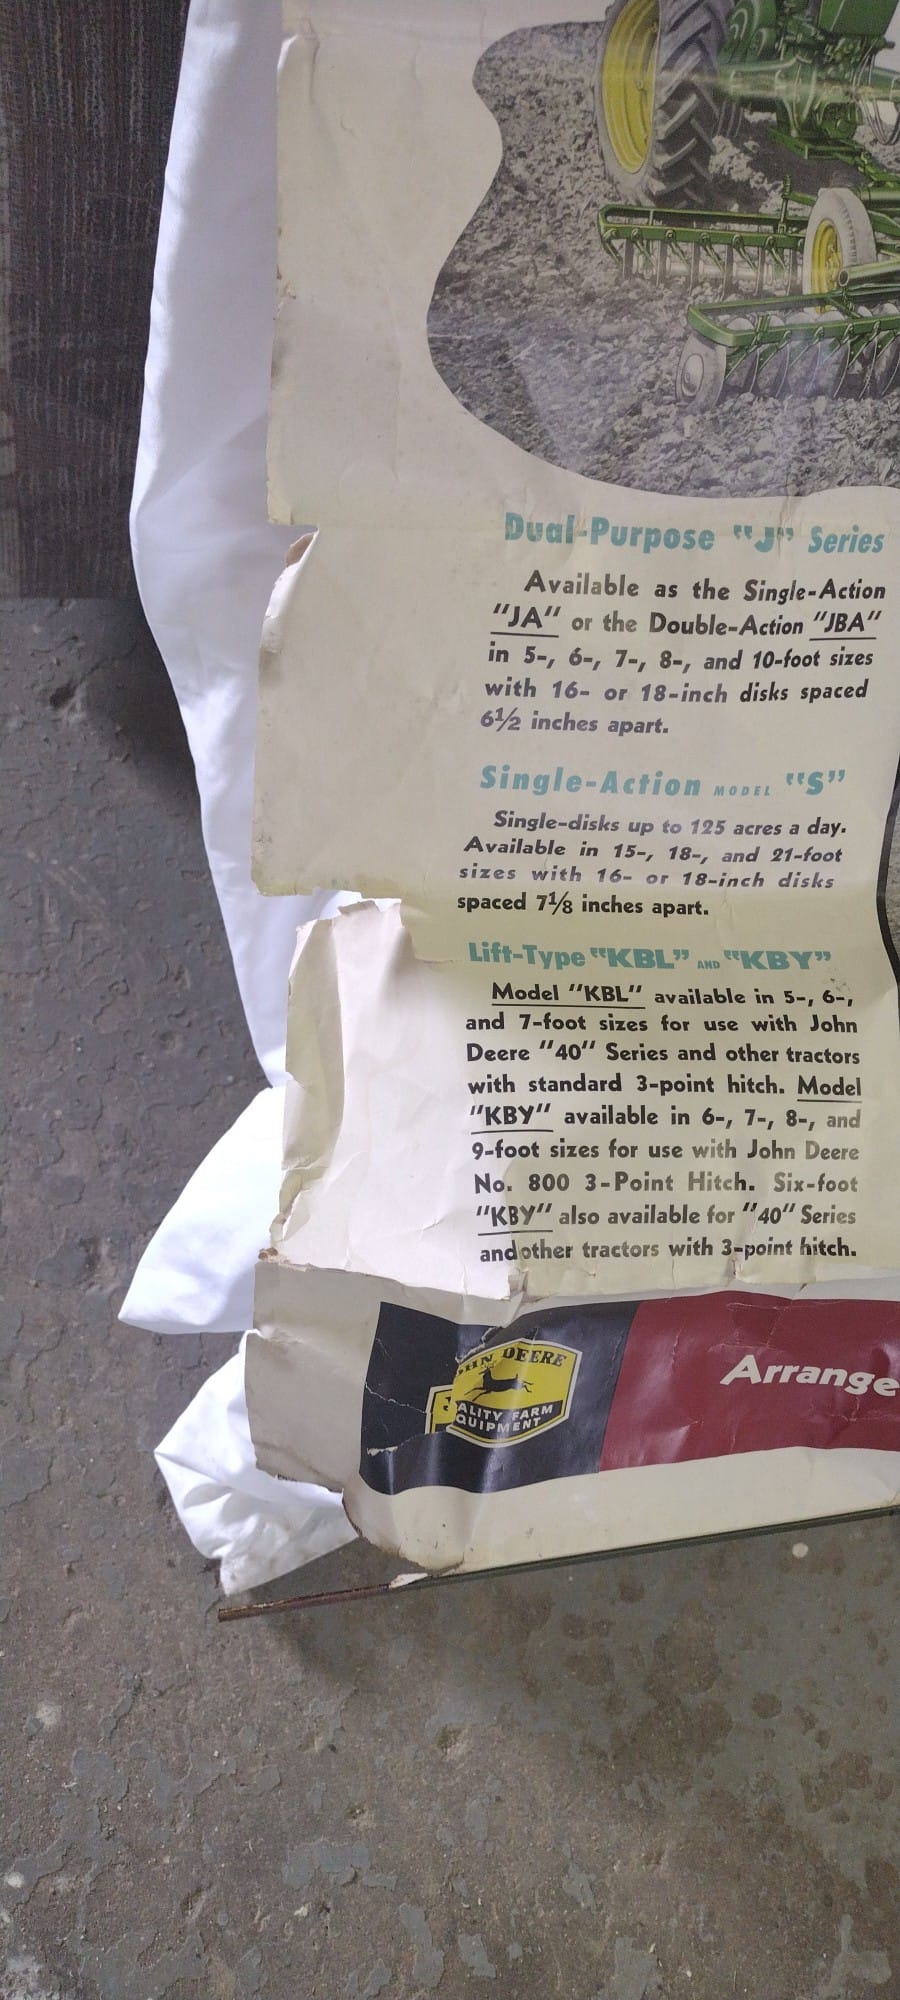 Dual-Purpose "J" Series
Available as the Single-Action
"JA" or the Double-Action "JBA"
in 5-, 6-, 7-, 8-, and 10-foot sizes
with 16- or 18-inch disks spaced
6½ inches apart.
Single-Action MODEL "S"
Single-disks up to 125 acres a day.
Available in 15-, 18-, and 21-foot
sizes with 16- or 18-inch disks
spaced 7⅛ inches apart.
Lift-Type "KBL" AND "KBY"
Model "KBL" available in 5-, 6-,
and 7-foot sizes for use with John
Deere "40" Series and other tractors
with standard 3-point hitch. Model
"KBY" available in 6-, 7-, 8-, and
9-foot sizes for use with John Deere
No. 800 3-Point Hitch. Six-foot
"KBY" also available for "40" Series
and other tractors with 3-point hitch.
J
OHN DEERE
ALITY FARM
QUIPMENT
Arrange